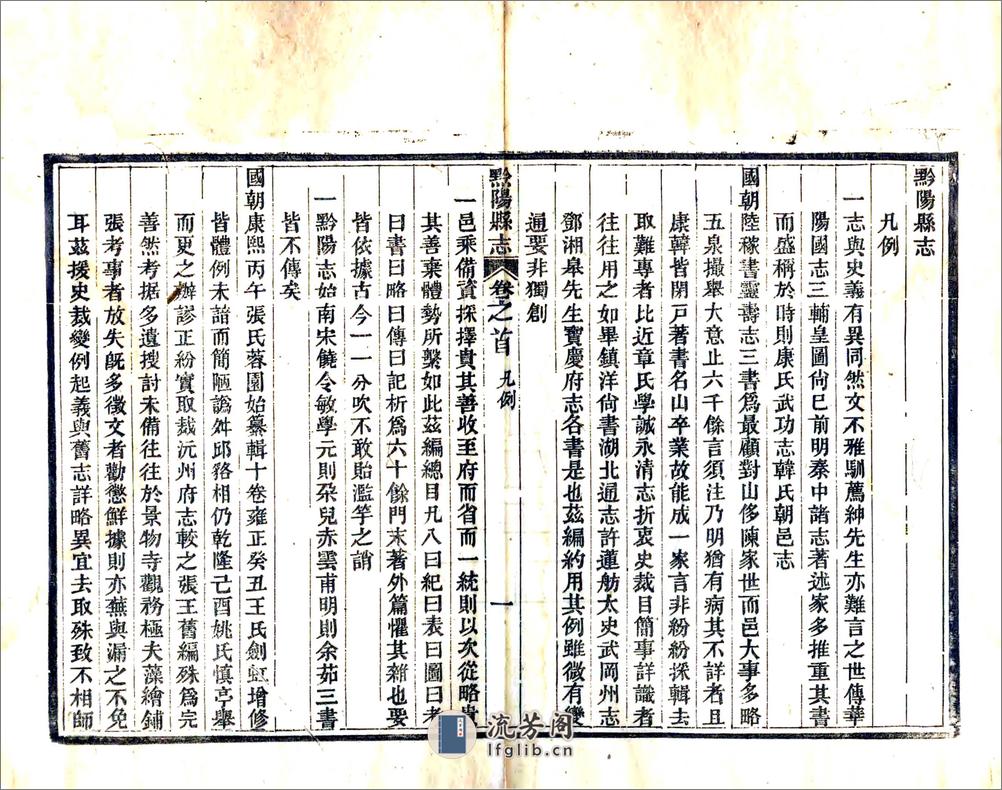 黔陽縣志
凡例
一志與史義有異同然文不雅馴薦紳先生亦難言之世傳華
陽國志三輔皇圖尙巳前明秦中諸志著述家多推重其書
而盛稱於時則康氏武功志韓氏朝邑志
國朝陸稼書靈壽志三書爲最顧對山侈陳家世而邑大事多略
五泉撮舉大意止六千餘言須注乃明猶有病其不詳者且
康韓皆閉戸著書名山卒業故能成一家言非紛紛採輯去
取難專者比近章氏學誠永清志折衷史裁目簡事詳識者
往往用之如畢鎮洋尙書湖北通志許蓮舫太史武岡州志
鄧湘皋先生寶慶府志各書是也茲編約用其例雖微有變
通要非獨創
黔陽縣志 卷之首 凡例 一
一邑乘備資採擇貴其善收至府而省而一統則以次從略貴
其善棄體勢所繫如此茲編總目凡八曰紀曰表曰圖曰考
曰書曰略曰傳曰記析爲六十餘門末著外篇懼其雜也要
皆依據古今一一分吹不敢貽濫竽之誚
一黔陽志始南宋饒令敏學元則朶兒赤雲甫明則余茹三書
皆不傳矣
國朝康熙丙午張氏蓉園始纂輯十卷雍正癸丑王氏劍虹增修
皆體例未諳而簡陋譌舛邱貉相仍乾隆己酉姚氏慎亭舉
而更之辦謬正紛實取裁沅州府志較之張王舊編殊爲完
善然考据多遺搜討未備往往於景物寺觀務極夫藻繪鋪
張考事者放失旣多徵文者勸懲鮮據則亦蕪與漏之不免
耳茲援史裁變例起義與舊志詳略異宜去取殊致不相師
流芳阁
lfglib.cn